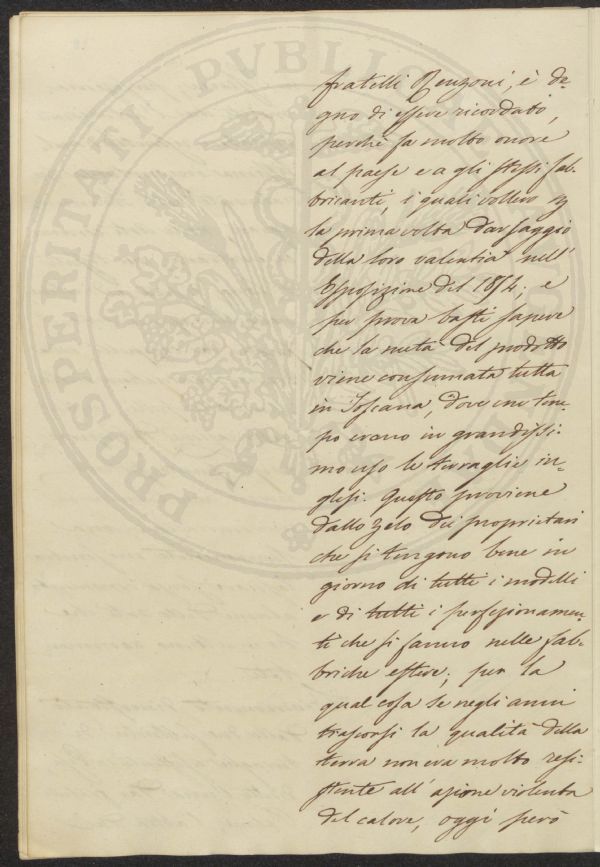 fratelli Renzoni, è de-
gno di essere ricordato,
perchè fa molto onore
al paese e a gli stessi fab-
bricanti, i quali vollero
la prima volta dar saggio
della loro valentia nell'
Esposizione del 1854; e
per prova basti sapere
che la metà del prodotto
viene consumata tutta
in Toscana, dove un tem-
po erano in grandissi-
mo uso le terraglie in-
glesi. Questo proviene
dallo zelo dei proprietari
che si tengono bene in
giorno di tutti i modelli
e di tutti i perfezionamen-
ti che si fanno nelle fab-
briche estere; per la
qual cosa se negli anni
trascorsi la qualità della
terra non era molto resi-
stente all'azione violenta
del calore, oggi però
PROSPERITATI PVBLICAE